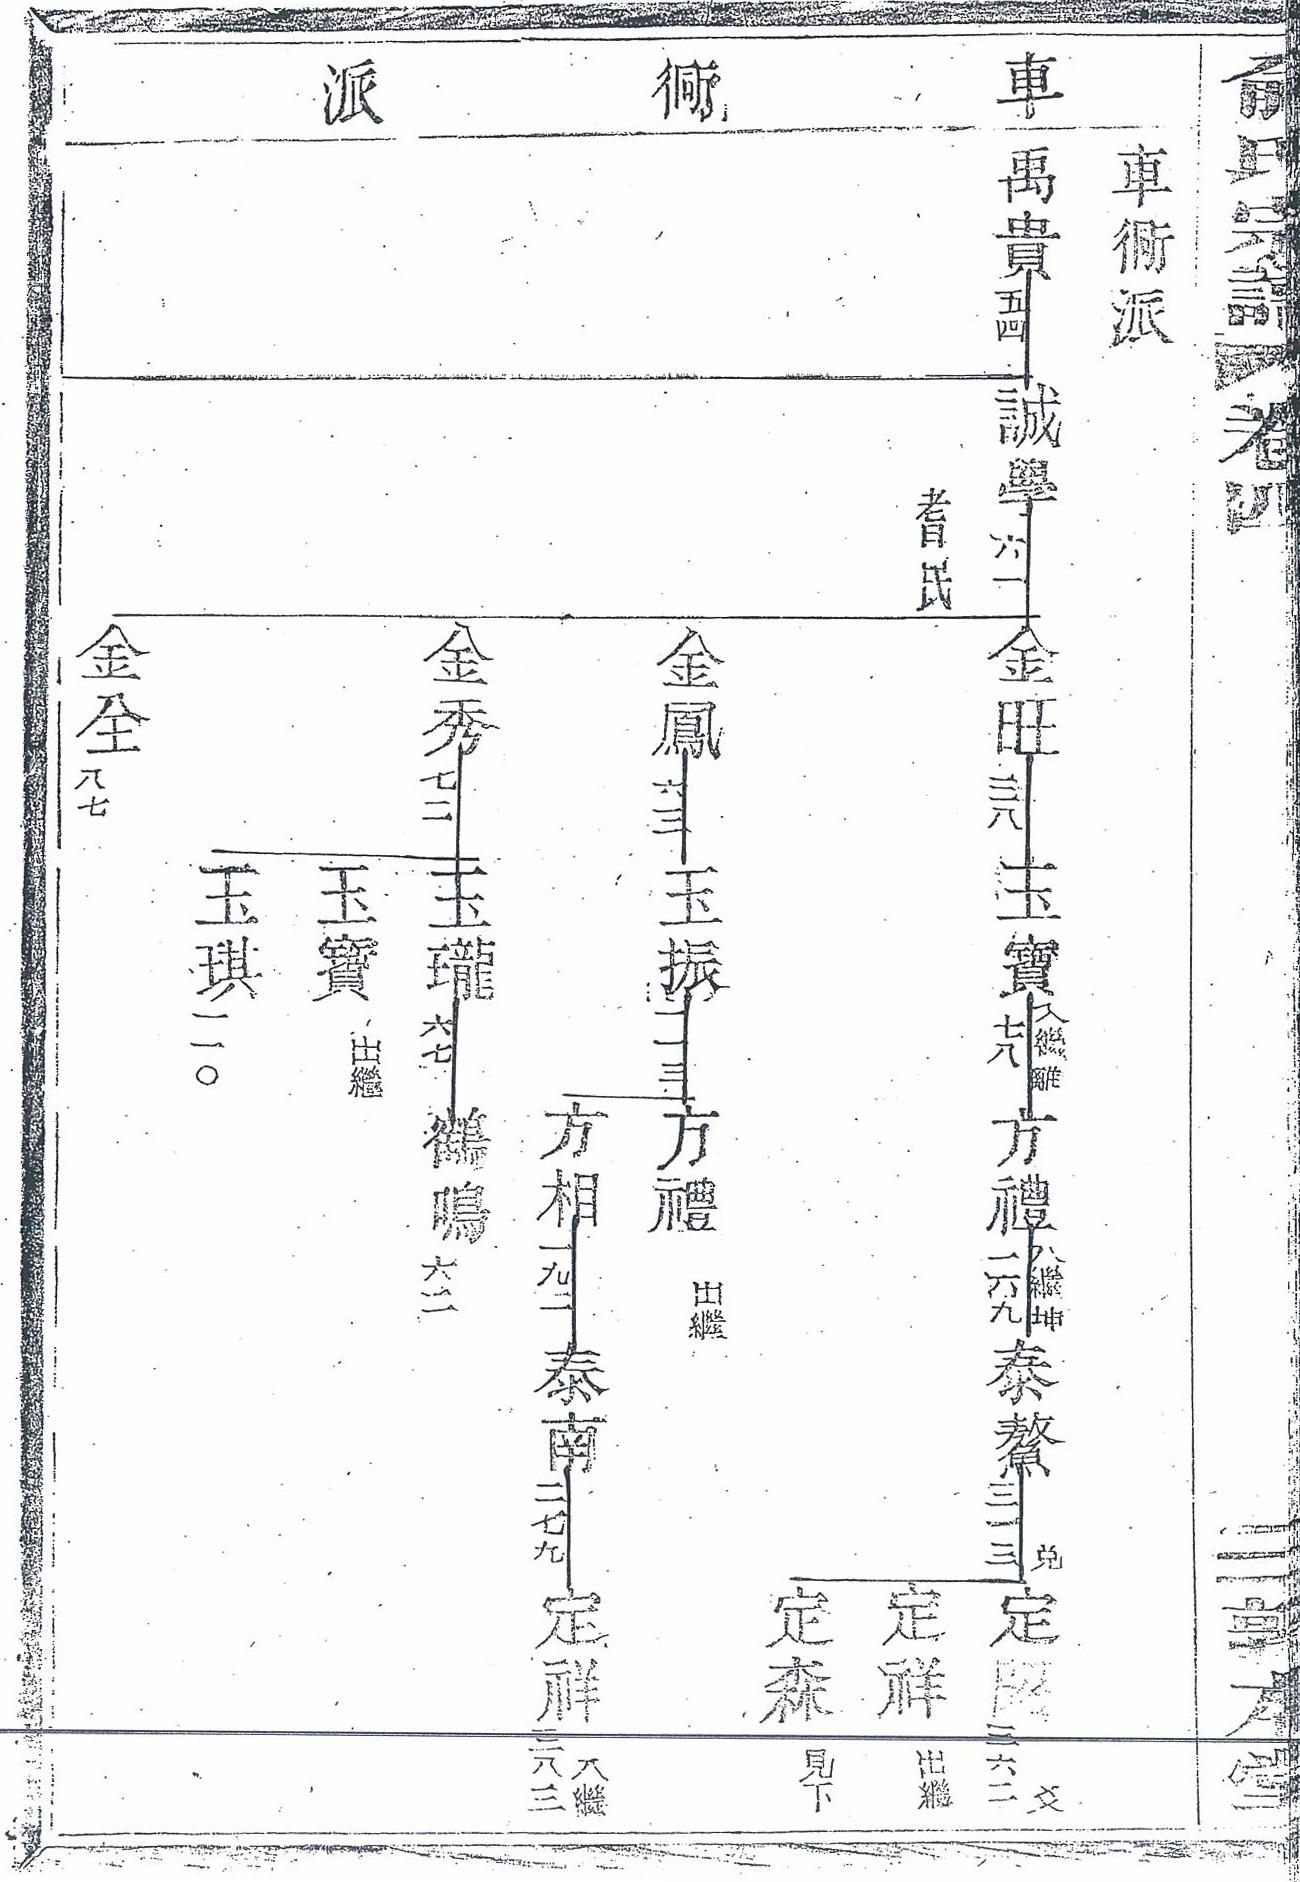 俞氏宗譜
卷四
三東堂
車衕派
車衕派
禹貴 五四
誠學 六一
耆民
金旺 三八
玉寶 七八 入繼離
方禮 一六九 入繼坤
泰鰲 三一三 兌
定 三六二 爻
定祥 出繼
定森 見下
金鳳 六三
玉振 一一三
方禮 出繼
方相 一九二
泰南 二七九
定祥 三八三 入繼
金秀 七二
玉瓏 六七
鶴鳴 六二
玉寶 出繼
玉琪 一一〇
金全 八七